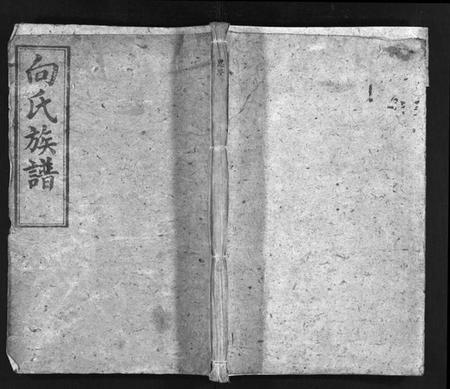 向氏族譜